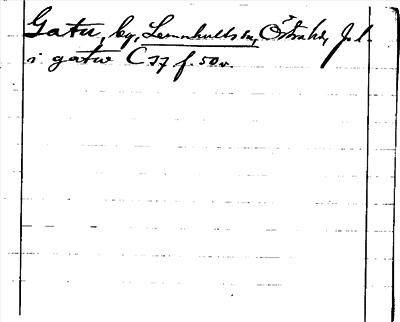 Gatu, by, Lemnhults sn, Östra hd, J. l.
i gatw C 57 f. 50 v.